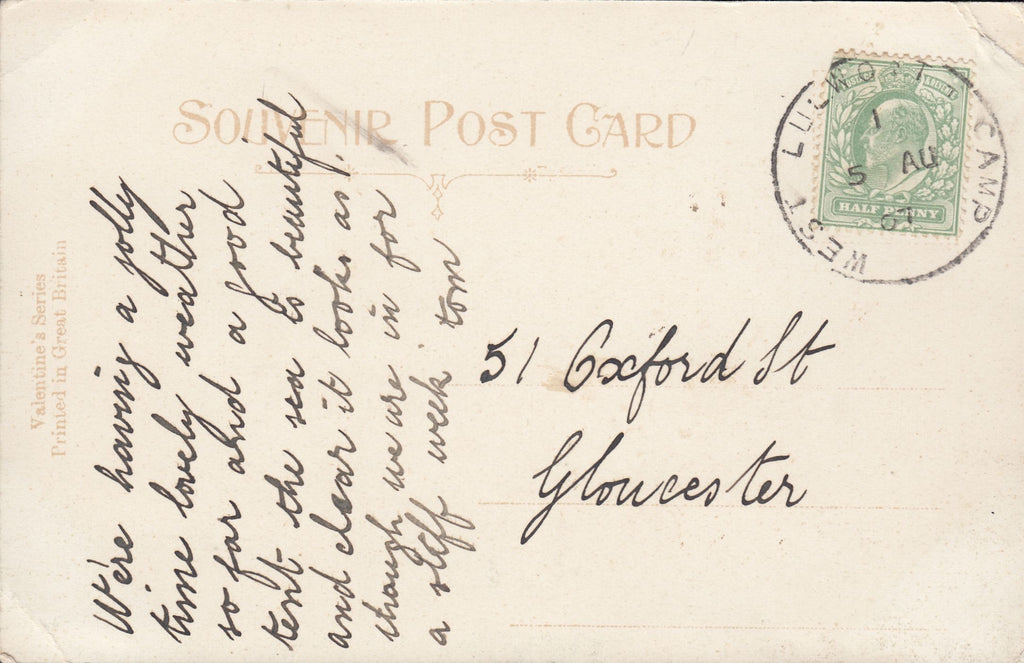 SOUVENIR POST CARD
Valentine's Series
Printed in Great Britain
We're having a jolly
time lovely weather
so far and a good
tent the sea is beautiful
and clear it looks as
though we are in for
a stiff week tom
51 Oxford St
Gloucester
WEST LULWORTH CAMP
1
5 AU
07
HALF PENNY